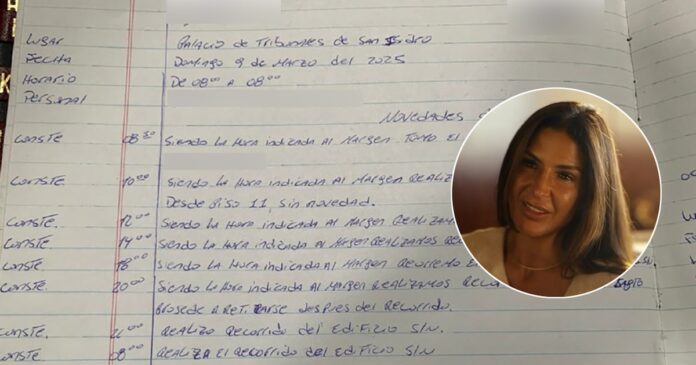 Lugar Palacio de Tribunales de San Isidro
Fecha Domingo 9 de Marzo del 2025
Horario De 08:00 a 08:00
Personal
Novedades
Conste 08:30 Siendo la Hora indicada al Margen Tomo el
Conste. 10:00 Siendo la Hora indicada al Margen
Desde Piso 11, sin novedad.
Conste. 12:00 Siendo la Hora indicada al Margen
Conste. 14:00 Siendo la Hora indicada al Margen Realizamos
Conste. 18:00 Siendo la Hora indicada al Margen Recorremo
Conste. 20:00 Siendo la Hora indicada al Margen Realizamos
Prosede a Retirarse despues del Recorrido.
Conste. Realizo Recorrido del Edificio S/N.
Conste. 08:00 Realiza el Recorrido del Edificio S/N